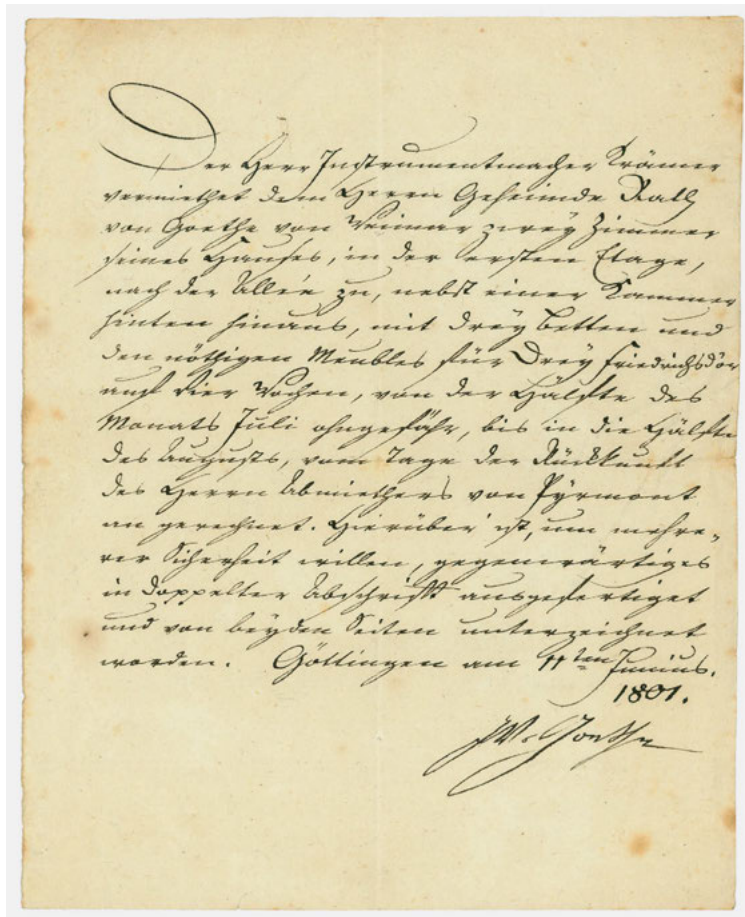 Der Herr Instrumentmacher Krämer
vermiethet dem Herrn Geheimde Rath
von Goethe von Weimar zwey Zimmer
seines Hauses, in der ersten Etage,
nach der Allée zu, nebst einer Kammer
hinten hinaus, mit drey Betten und
den nöthigen Meubles für Drey Friedrichsdor
auf vier Wochen, von der Hälfte des
Monats Juli ohngefähr, bis in die Hälfte
des Augusts, vom Tage der Rückkunft
des Herrn Abmiethers von Pyrmont
an gerechnet. Hierüber ist, um mehre-
rer Sicherheit willen, gegenwärtiges
in doppelter Abschrift ausgefertiget
und von beyden Seiten unterzeichnet
worden. Göttingen am 11ten Junius.
1801.
JWvGoethe